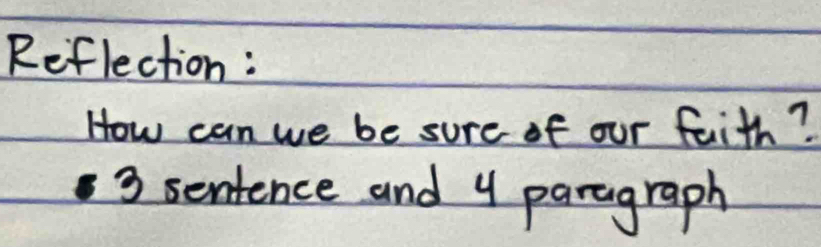 Reflection:
How can we be sure of our faith?
3 sentence and 4 paragraph